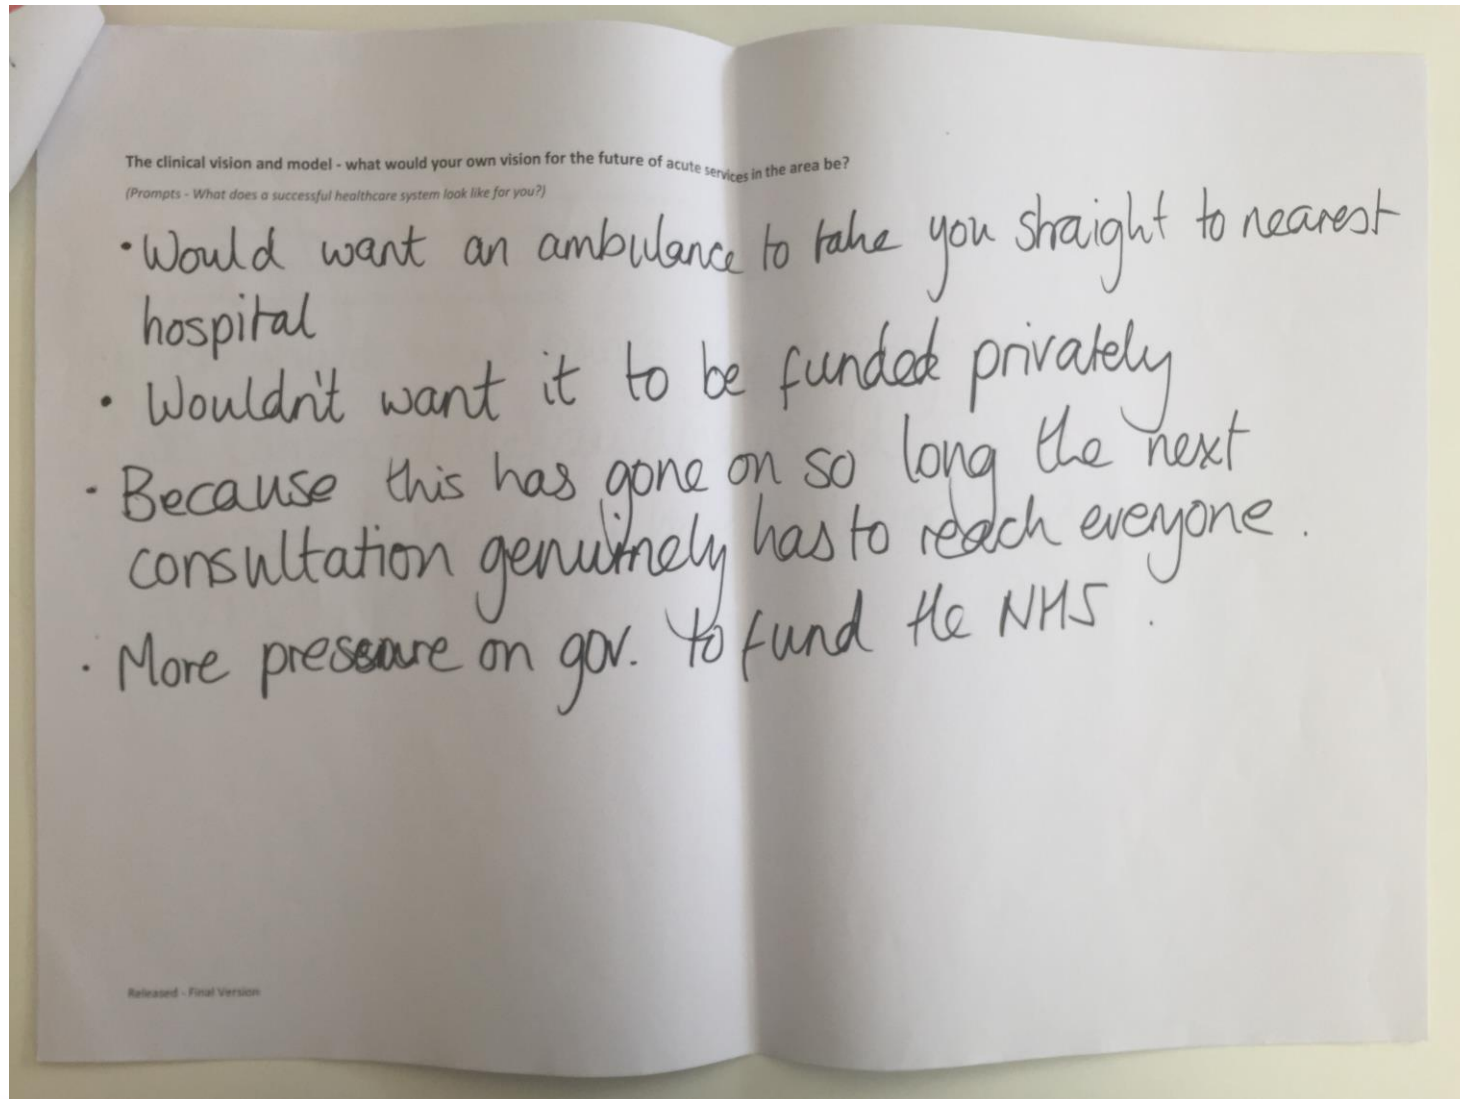 The clinical vision and model - what would your own vision for the future of acute services in the area be?
(Prompts - What does a successful healthcare system look like for you?)
• Would want an ambulance to take you straight to nearest
hospital
• Wouldn't want it to be funded privately
• Because this has gone on so long the next
consultation genuinely has to reach everyone.
• More pressure on gov. to fund the NHS.
Released - Final Version